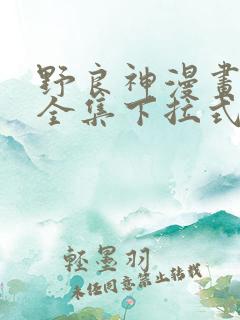 野良神漫畫
全集下拉式
輕墨羽
未经同意禁止转载